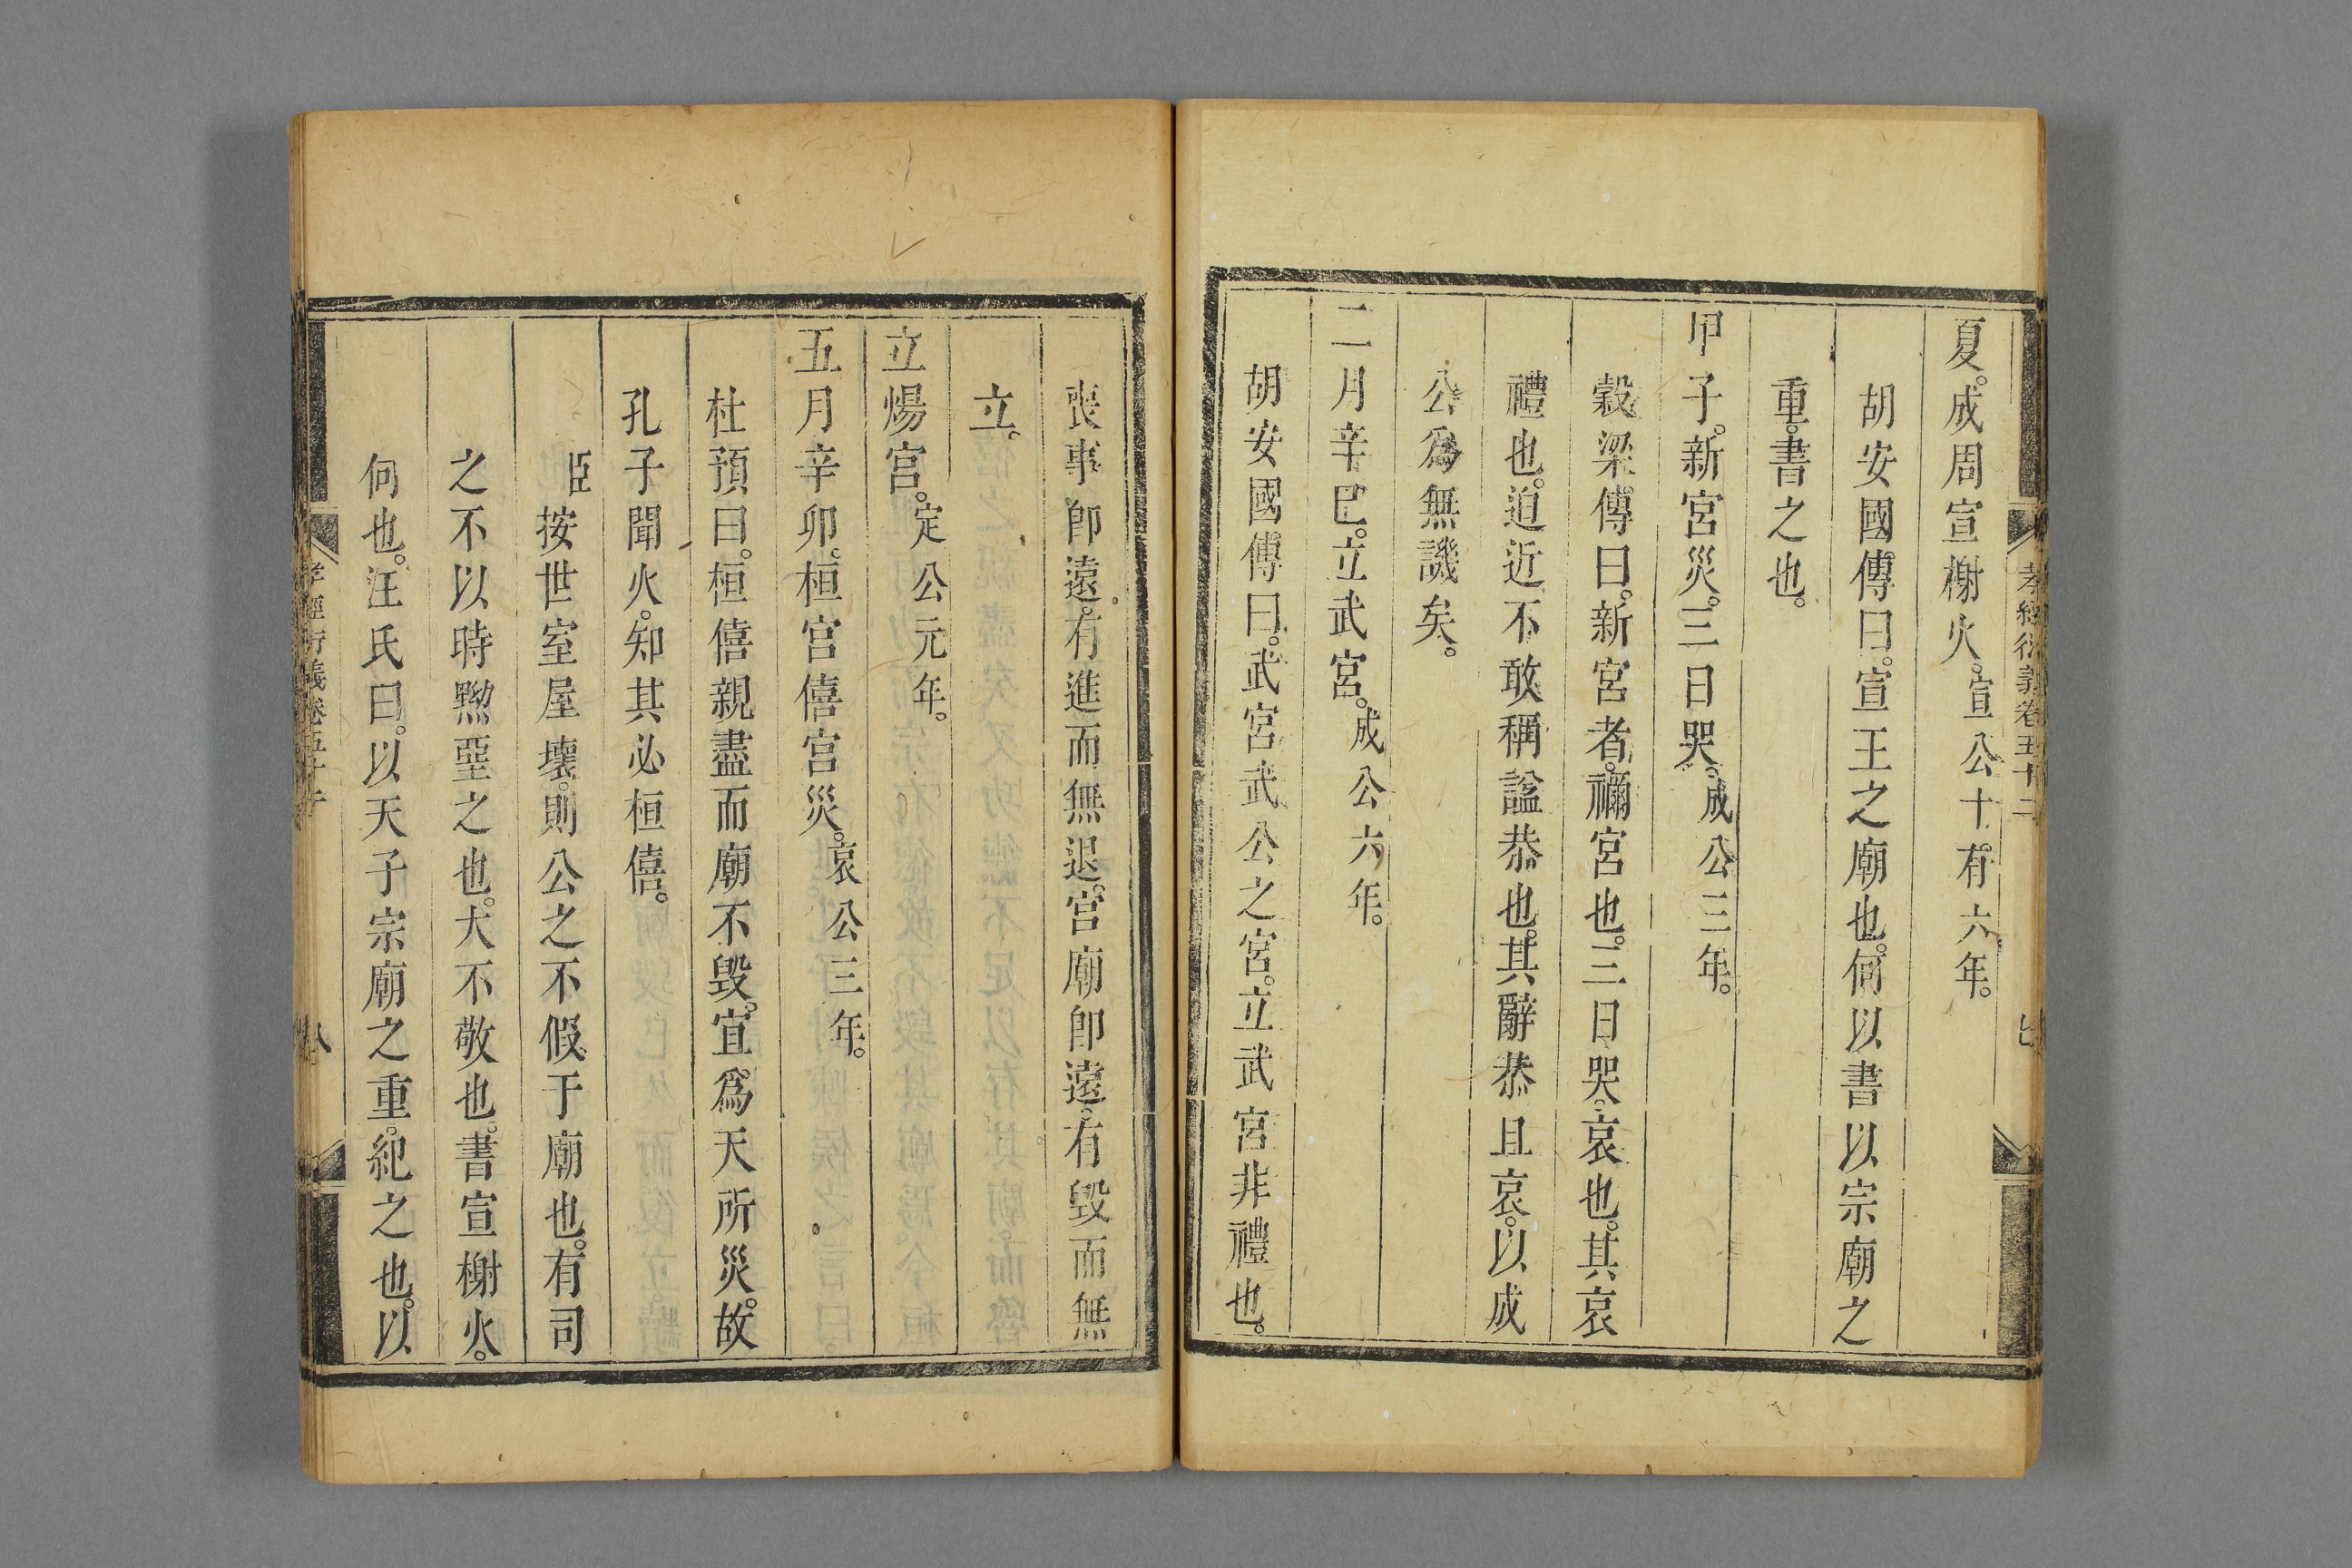 孝經衍義卷五十二
七
夏。成周宣榭火。宣公十。有六年。
胡安國傳曰。宣王之廟也。何以書。以宗廟之
重。書之也。
甲子。新宮災。三日哭。成公三年。
穀梁傳曰。新宮者。禰宮也。三日哭。哀也。其哀
禮也。迫近不敢稱諡。恭也。其辭恭且哀。以成
公爲無譏矣。
二月辛巳。立武宮。成公六年。
胡安國傳曰。武宮武公之宮。立武宮非禮也。
喪事即遠。有進而無退。宮廟即遠。有毀而無
立。
立煬宮。定公元年。
五月辛卯。桓宮僖宮災。哀公三年。
杜預曰。桓僖親盡而廟不毀。宜爲天所災。故
孔子聞火。知其必桓僖。
臣按世室屋壞。則公之不假于廟也。有司
之不以時黝堊之也。大不敬也。書宣榭火。
何也。汪氏曰。以天子宗廟之重。紀之也。以
孝經衍義卷五十二
八